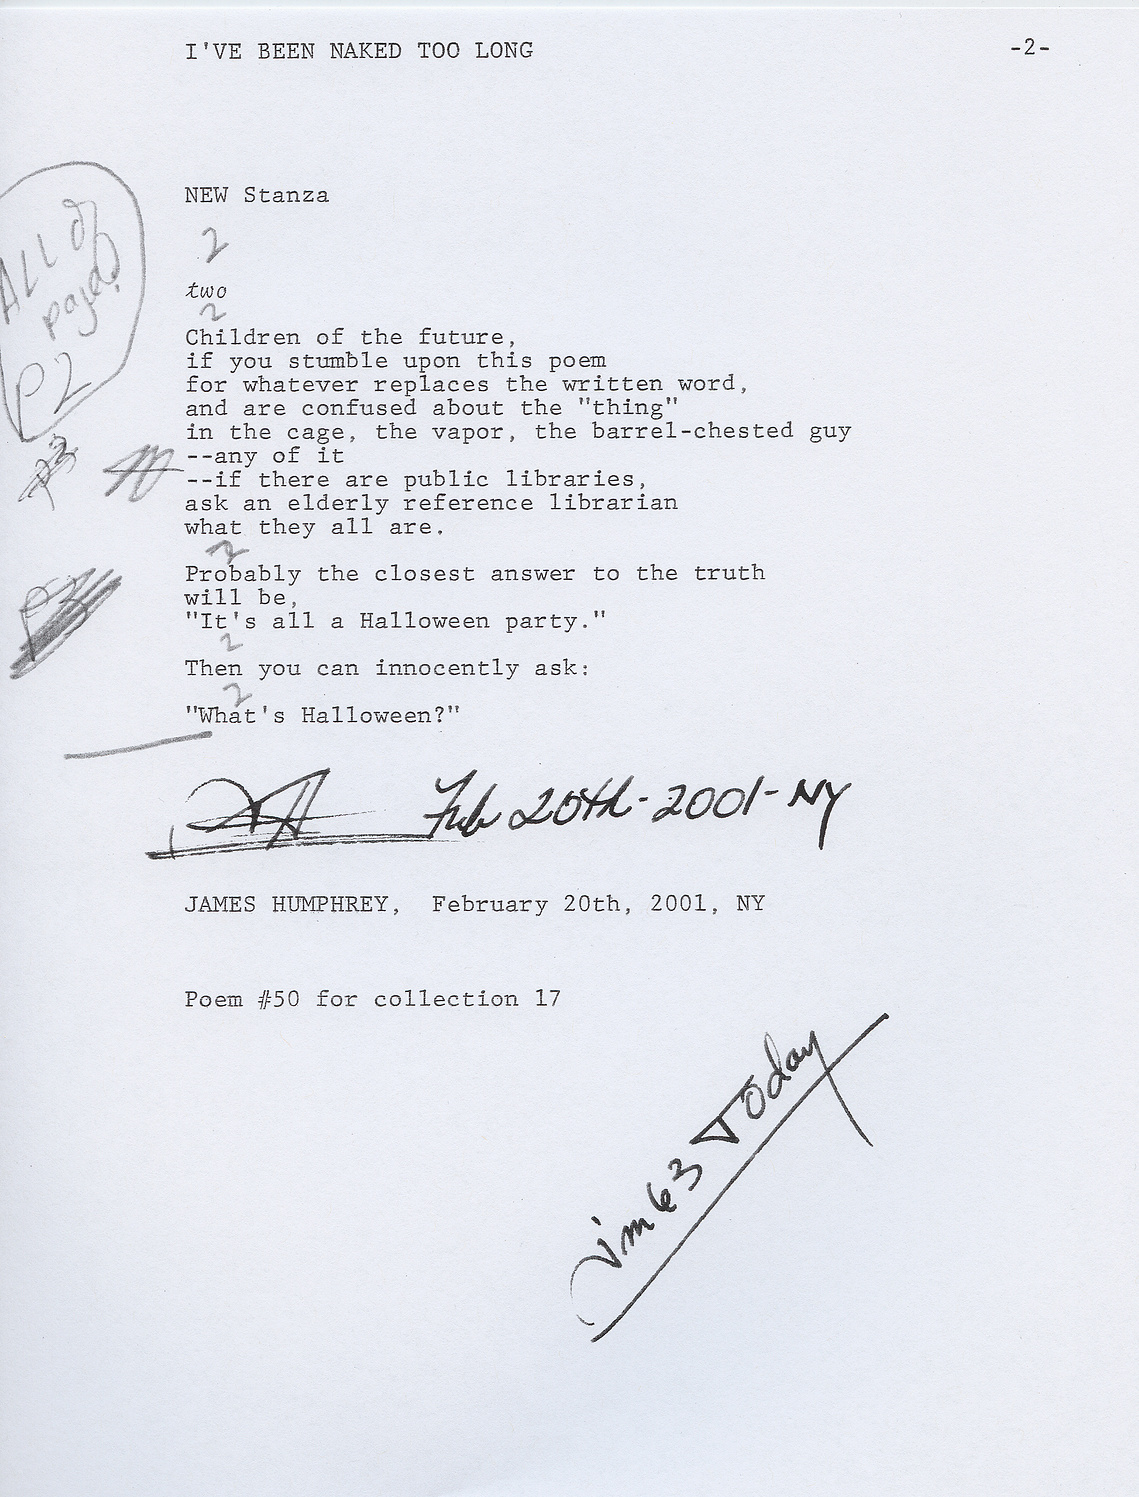 I'VE BEEN NAKED TOO LONG -2-
NEW Stanza
ALL of
page
P2
2
two
2
Children of the future,
if you stumble upon this poem
for whatever replaces the written word,
and are confused about the "thing"
in the cage, the vapor, the barrel-chested guy
--any of it
--if there are public libraries,
ask an elderly reference librarian
what they all are.
2
Probably the closest answer to the truth
will be,
"It's all a Halloween party."
2
Then you can innocently ask:
2
"What's Halloween?"
Feb 20th-2001-NY
JAMES HUMPHREY, February 20th, 2001, NY
Poem #50 for collection 17
I'm 63 Today